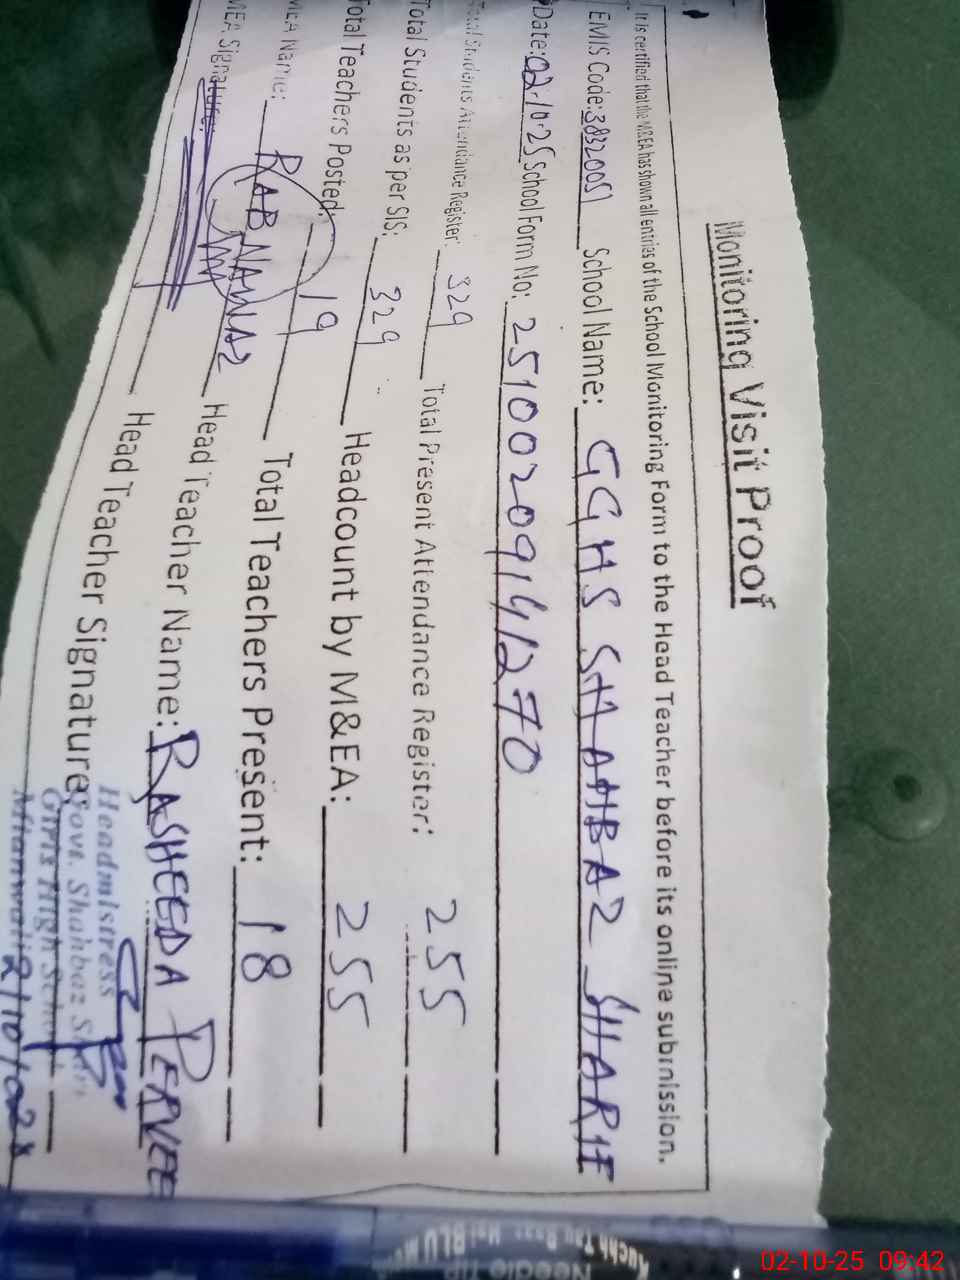 Monitoring Visit Proof
It is certified that the M&EA has shown all entries of the School Monitoring Form to the Head Teacher before its online submission.
EMIS Code: 38320051 School Name: GGHS SHAHBAZ SHARIF
Date: 02-10-25 School Form No: 25100209141270
Total Students Attendance Register: 329 Total Present Attendance Register: 255
Total Students as per SIS: 329 Headcount by M&EA: 255
Total Teachers Posted: 19 Total Teachers Present: 18
MEA Name: RAB NAWAZ Head Teacher Name: RASHEEDA PERVEE
MEA Signature: Head Teacher Signature:
Headmistress
Govt. Shahbaz Sharif
Girls High School
Mianwali
Needle Tip
02-10-25 09:42